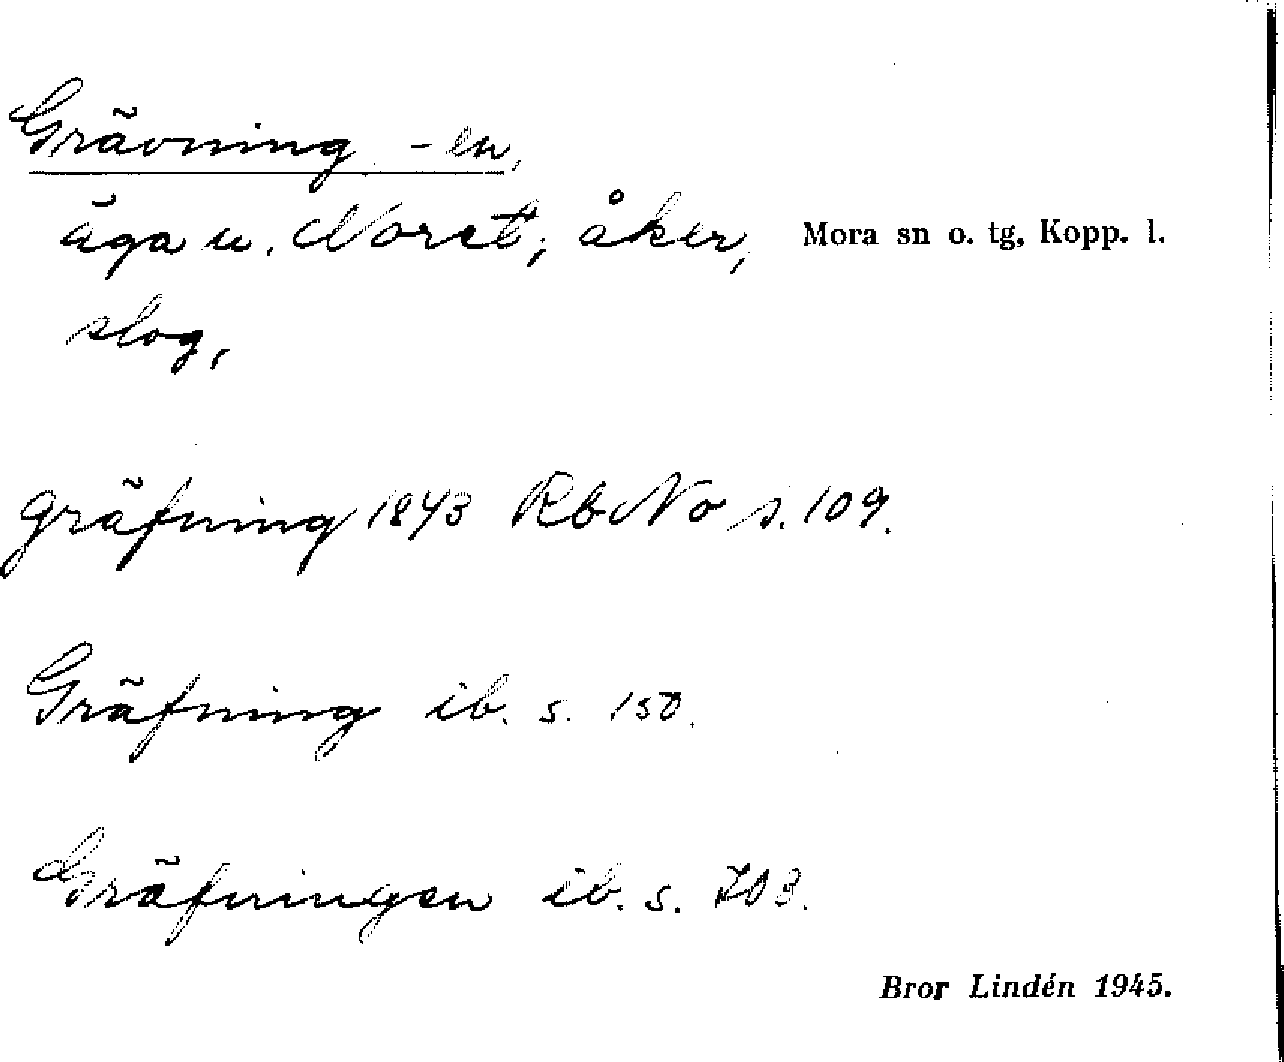 Grävning -en,
äga u. Noret, åker, Mora sn o. tg, Kopp. l.
slog,
gräfning 1843 Rb No s. 109.
Gräfning ib. s. 150.
Gräfningen ib. s. 703.
Bror Lindén 1945.